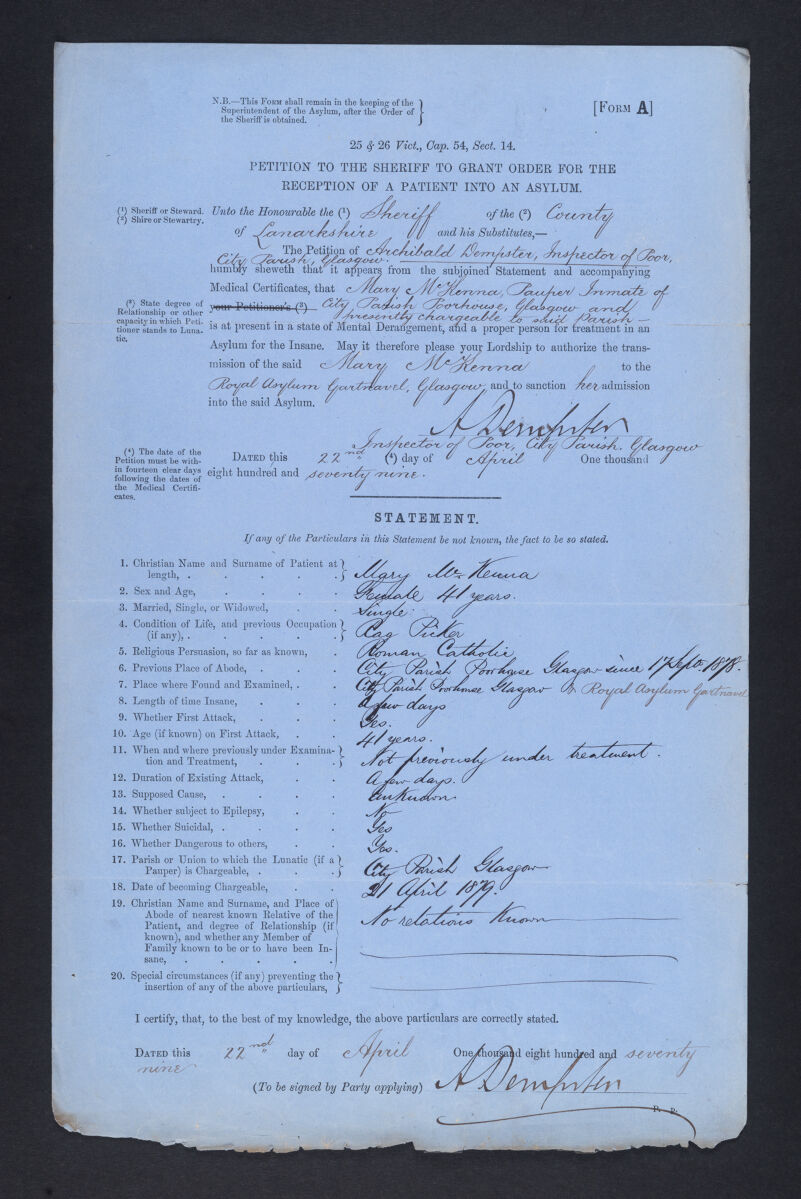 N.B.—This Form shall remain in the keeping of the
Superintendent of the Asylum, after the Order of
the Sheriff is obtained.
[Form A]
25 & 26 Vict., Cap. 54, Sect. 14.
PETITION TO THE SHERIFF TO GRANT ORDER FOR THE
RECEPTION OF A PATIENT INTO AN ASYLUM.
(1) Sheriff or Steward.
(2) Shire or Stewartry.
Unto the Honourable the (1) Sheriff of the (2) County
of Lanarkshire and his Substitutes,—
The Petition of Archibald Dempster, Inspector of Poor,
City Parish, Glasgow.
humbly sheweth that it appears from the subjoined Statement and accompanying
Medical Certificates, that Mary McKenna, Pauper Inmate of
(3) State degree of
Relationship or other
capacity in which Peti-
tioner stands to Luna-
tic.
your Petitioner's (3) City Parish Poorhouse, Glasgow and
presently chargeable to said Parish —
is at present in a state of Mental Derangement, and a proper person for treatment in an
Asylum for the Insane. May it therefore please your Lordship to authorize the trans-
mission of the said Mary McKenna to the
Royal Asylum Gartnavel, Glasgow, and to sanction her admission
into the said Asylum.
A Dempster
Inspector of Poor, City Parish. Glasgow
(4) The date of the
Petition must be with-
in fourteen clear days
following the dates of
the Medical Certifi-
cates.
Dated this 22nd (4) day of April One thousand
eight hundred and seventy nine.
STATEMENT.
If any of the Particulars in this Statement be not known, the fact to be so stated.
1. Christian Name and Surname of Patient at
length, . . . . . . Mary McKenna
2. Sex and Age, . . . . . Female 41 years.
3. Married, Single, or Widowed, . . Single.
4. Condition of Life, and previous Occupation
(if any), . . . . . . Rag Picker
5. Religious Persuasion, so far as known, . Roman Catholic
6. Previous Place of Abode, . . . City Parish Poorhouse Glasgow since 17 Sept 1878.
7. Place where Found and Examined, . . City Parish Poorhouse Glasgow & Royal Asylum Gartnavel
8. Length of time Insane, . . . A few days
9. Whether First Attack, . . . Yes.
10. Age (if known) on First Attack, . . 41 years.
11. When and where previously under Examina-
tion and Treatment, . . . . Not previously under treatment.
12. Duration of Existing Attack, . . A few days.
13. Supposed Cause, . . . . Unknown.
14. Whether subject to Epilepsy, . . No
15. Whether Suicidal, . . . . Yes
16. Whether Dangerous to others, . . Yes.
17. Parish or Union to which the Lunatic (if a
Pauper) is Chargeable, . . . . City Parish Glasgow
18. Date of becoming Chargeable, . . 21 April 1879.
19. Christian Name and Surname, and Place of
Abode of nearest known Relative of the
Patient, and degree of Relationship (if
known), and whether any Member of
Family known to be or to have been In-
sane, . . . . . .
No relations Known
20. Special circumstances (if any) preventing the
insertion of any of the above particulars,
I certify, that, to the best of my knowledge, the above particulars are correctly stated.
Dated this 22nd day of April One thousand eight hundred and seventy
nine
(To be signed by Party applying) A Dempster
P. P.